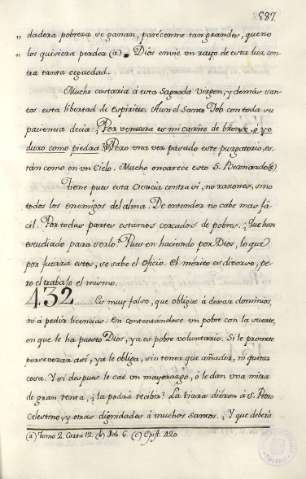 587
„ dadera pobreza se ganan, parecerme tan grandes, que no
„ los quisiera perder (a). Dios envie un rayo de esta luz con
tra tanta ceguedad.
Mucho costaria á esta Sagrada Virgen, y demás san
tos esta libertad de Espiritu. Aun el Santo Job con toda su
paciencia decia: ¿Por ventura es mi carne de bronce, o yo
duro como piedra? Pero una vez pasado este purgatorio es
tán como en un Cielo. Mucho encarece esto S. Bernardo (c)
Tiene pues esta Ciencia contra si, no razones, sino
todos los enemigos del alma. De entender no cabe mas fá
cil. Por todas partes estamos cercados de pobres. ¿Que han
estudiado para serlo? Pues en haciendo por Dios, lo que
por fuerza estos, se sabe el oficio. El mérito es diverso, pe
ro el trabajo el mismo.
432 Es muy falso, que obligue á dexar dominios,
ni á pedir licencias. En contentandose un pobre con la suerte,
en que le ha puesto Dios, ya es pobre voluntario. Si le promete
perseverar asi, ya le obliga, sin tener que añadir, ni quitar
cosa. Y si despues le cae un mayorazgo, ó le dan una mitra
de gran renta, ¿la podrá recibir? La tiara dieron á S. Pedro
Celestino, y otras dignidades á muchos Santos. ¿Y que deberia
(a) Tomo 2. Carta 12. (b) Job. 6. (c) Epist. 220